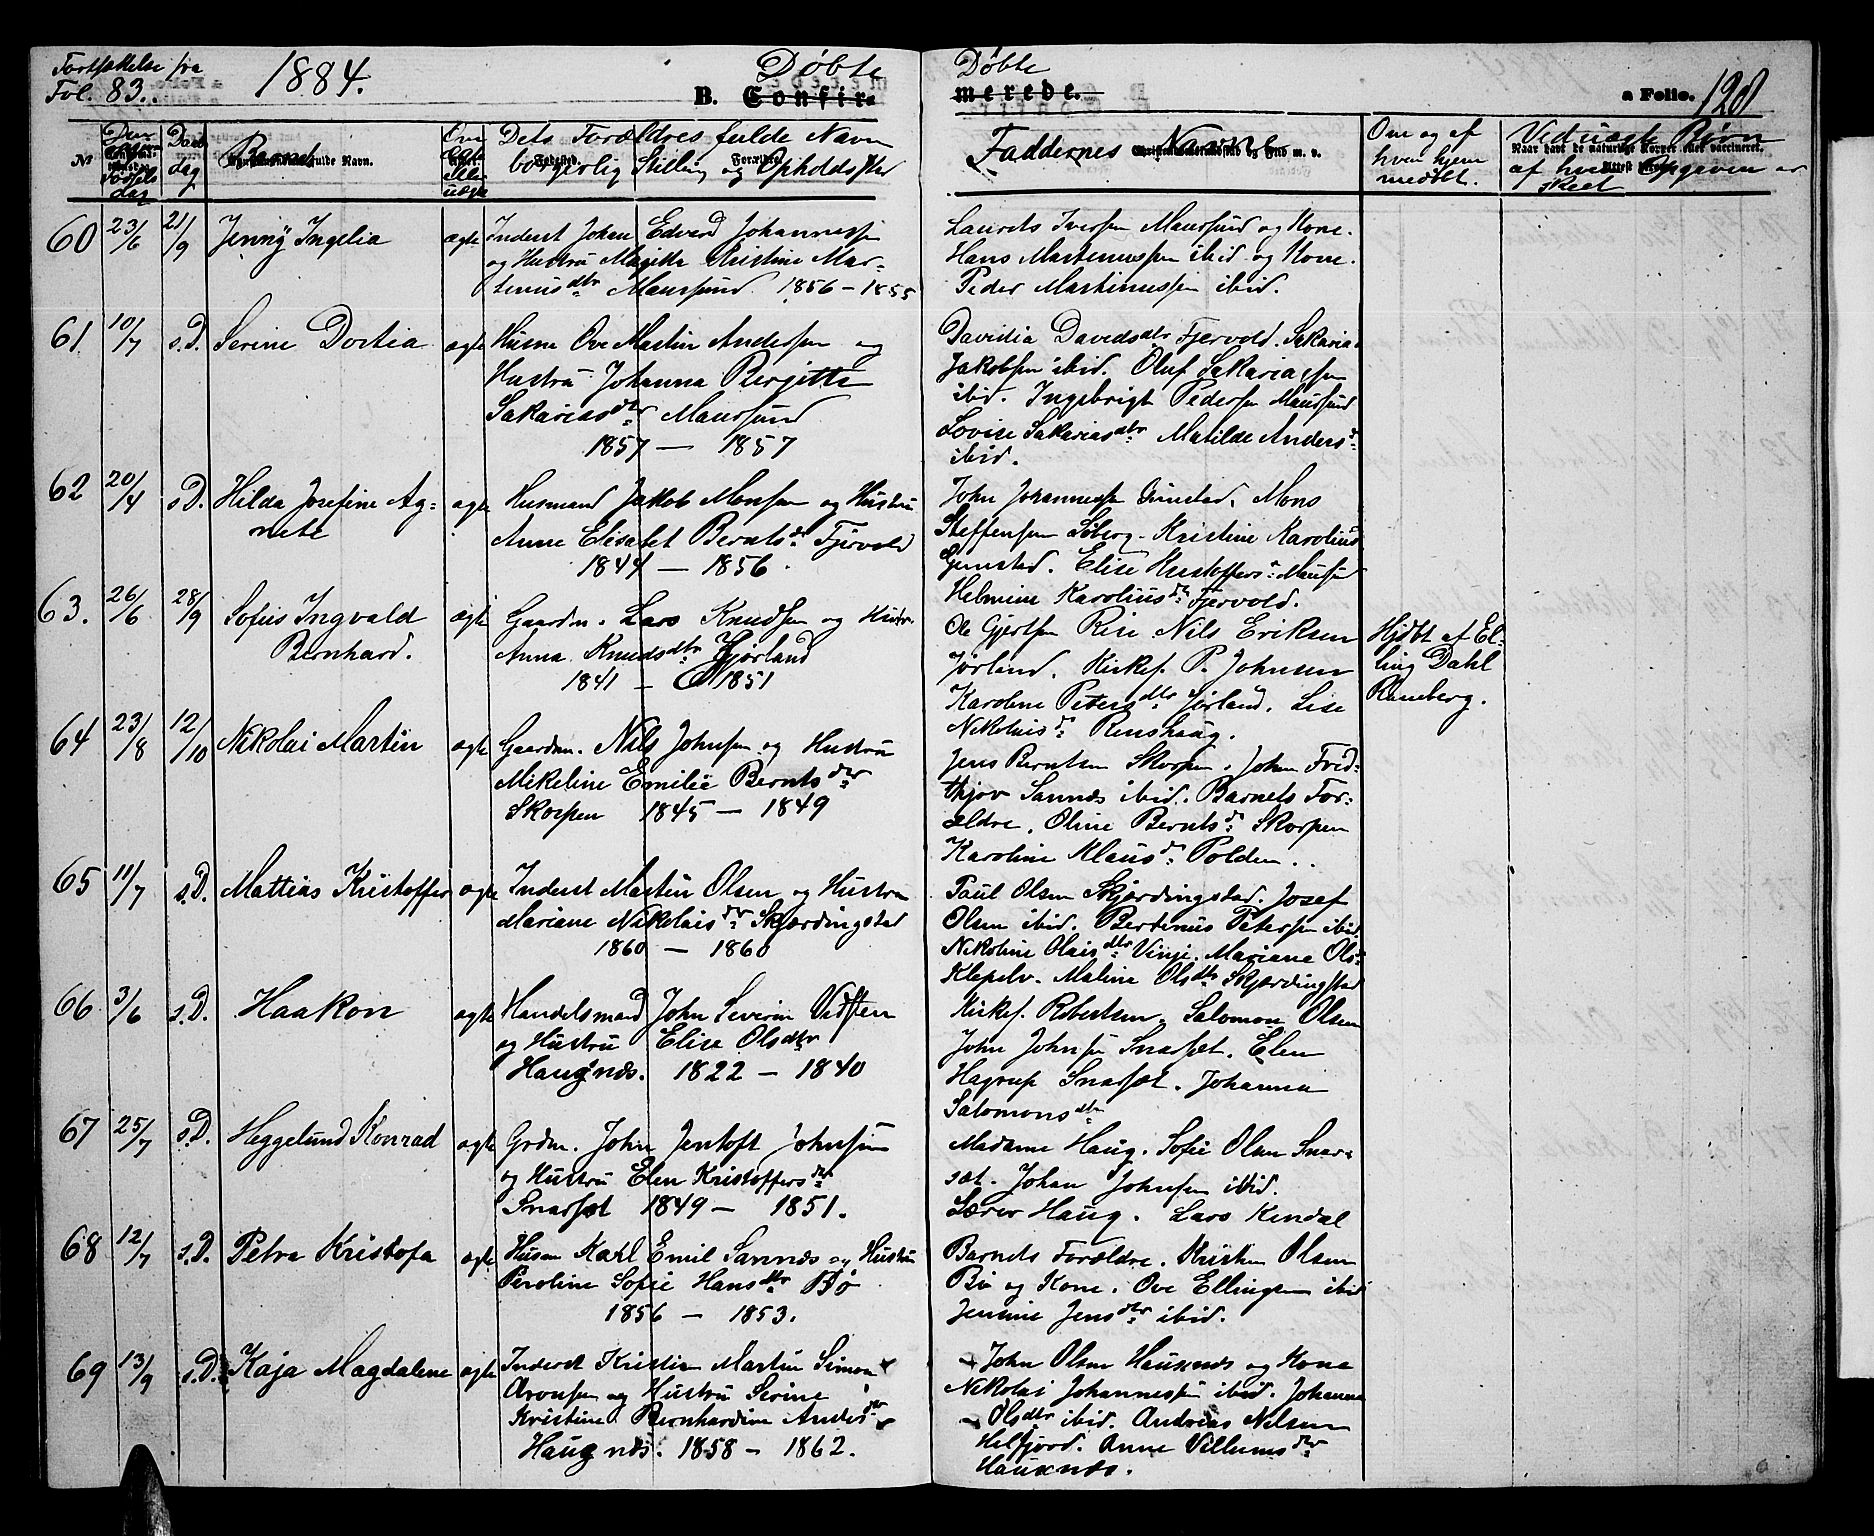 Fortsættelse fra
Fol. 83.
1884.
Døbte
B. Confir-
Døbte
merede.
a Folio. 128
№
Fødsels
dag
Daab
dag
Barnets fulde Navn.
Om
ægte
eller
uægte
Dets Forældres fulde Navn
borgerlig Stilling og Opholdssted
Faddernes Navne
Om og af
hvem hjem
medøbt.
Ved uægte Børn
af hvem Opgaven er
skeet
60 23/6 21/9 Jenny Ingelia ægte Inderst Johan Edvard Johannessen
og Hustru Magitta Kristine Mar-
tinusdtr Maursund 1856 - 1855
Laurits Iversen Maursund og Kone.
Hans Martinussen ibid og Kone.
Peder Martinussen ibid.
61 10/7 s.D. Serine Dortia ægte Husm Ove Martin Andersen og
Hustru Johanna Bergitte
Sakariasdtr Maursund
1857 — 1857
Davidia Davidsdtr Fjervold. Sakarias
Jakobsen ibid. Oluf Sakariassen
ibid. Ingebrigt Pedersen Maursund
Lovise Sakariasdtr Matilde Andersd
ibid.
62 20/4 s.D. Hilda Josefine Ag-
nete
ægte Husmand Jakob Monsen og Hustru
Anne Elisabet Berntsd Fjervold
1844 — 1856.
John Johannessen Grinstad. Mons
Steffensen Soberg. Kristine Karolius
Grinstad. Elise Kristoffersd Maursund
Helmine Karoliusdtr Fjervold.
63. 26/6 28/9 Sofus Ingvald
Bernhard.
ægte Gaardm. Lars Knudsen og Hustru
Anna Knudsdtr Hjørland
1841 - 1851
Ole Gjertsen Rise Nils Eriksen
Jørland. Kirkes. P. Johnsen
Karoline Petersdtr Jørland. Lise
Nikolaisd Renshaug.
Hjdbt af El-
ling Dahl
Ramberg.
64 23/8 12/10 Nikolai Martin ægte Gaardm. Nils Johnsen og Hustru
Mekeline Emilie Berntsdtr
Skorpen 1845 — 1849
Jens Berntsen Skorpen. Johan Frid-
thjov Sannæs ibid. Barnets For-
ældre. Oline Berntsd Skorpen
Karoline Klausd Polden.
65 11/7 s.D. Mattias Kristoffer ægte Inderst Martin Olsen og Hustru
Mariane Nikolaisdtr Skjærdingstad
1860 — 1860
Paul Olsen Skjærdingstad. Josef
Olsen ibid. Berdinus Petersen ibid
Nikoline Olaisdtr Vinje. Mariane Ols-
Klepelv. Maline Olsdtr Skjærdingstad
66 3/6 s.D. Haakon ægte Handelsmand John Severin Vidsten
og Hustru Elise Olsdtr
Haugnæs. 1822 — 1840
Kirkes. Robertsen. Salomon Olsen
John Johnsen Snarsæt. Elen
Hagrup Snarsæt. Johanna
Salomonsdtr
67 25/7 s.D. Heggelund Konrad ægte Grdm. John Jentoft Johnsen
og Hustru Elen Kristoffersdtr
Snarsæt 1849 — 1851.
Madame Haug. Sofie Olsen Snar-
sæt. Johan Johnsen ibid.
Lærer Haug. Lars Kindal
68 12/7 s.D. Petra Kristofa ægte Husm Karl Emil Sannæs og Hustru
Peroline Sofie Hansdtr Bø
1856 — 1853.
Barnets Forældre. Kristen Olsen
Bø og Kone. Ove Ellingsen ibid
Jensine Jensdtr ibid.
69 13/9 s.D. Kaja Magdalene ægte Inderst Kristian Martin Simon
Aronsen og Hustru Serine
Kristine Bernhardine Andersdtr
Haugnæs. 1858 - 1862.
John Olsen Hauknæs og Kone
Nikolai Johannessen ibid. Johanna
Olsdtr ibid. Andreas Nilsen
Helfjord. Anne Villumsdtr
Hauknæs.